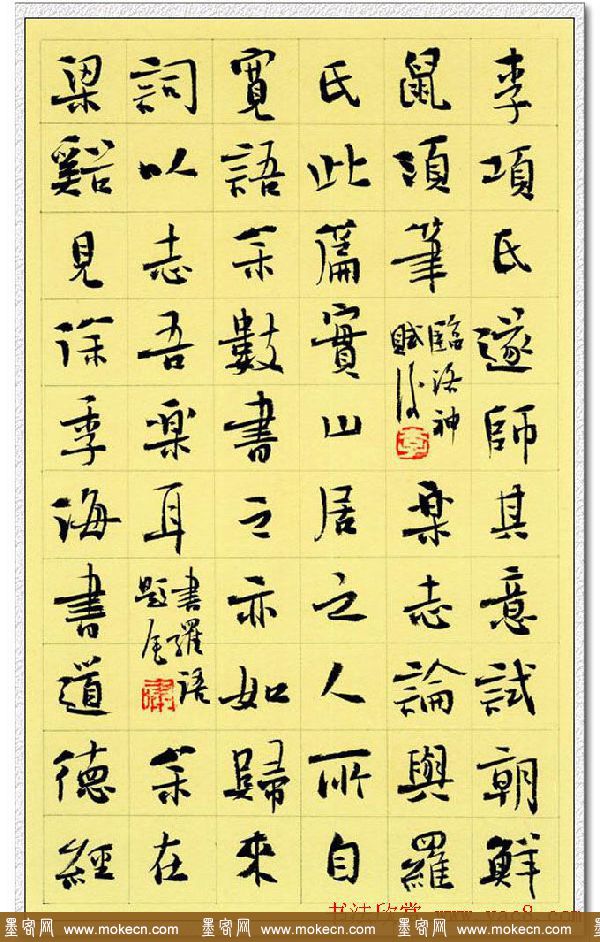 李項氏遂師其意試朝鮮
鼠須筆
臨洛神
賦後
樂志論與羅
氏此篇實山居之人所自
寬語余數書之亦如歸來
詞以志吾樂耳
書羅語
題尾
余在
梁谿見徐季海書道德經
书法欣赏 www.yac8.com
墨客网 www.mokecn.com 墨客网 www.mokecn.com 墨客网 www.mokecn.com 墨客网 www.mokecn.com